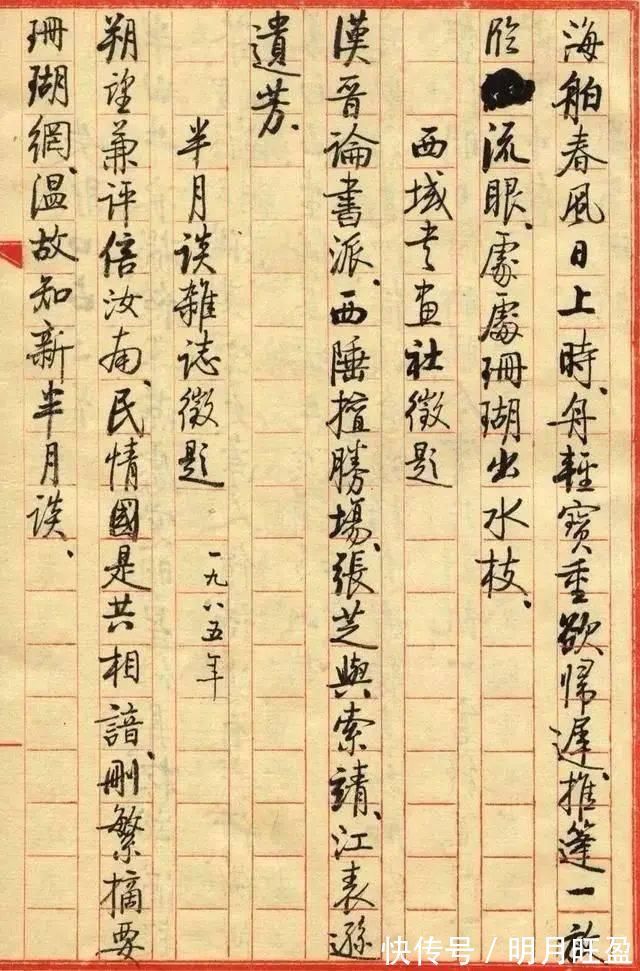 海舶春風日上時、舟輕寶重欲歸遲、推篷一放
流眼、處處珊瑚出水枝、
西域书画社徵題
漢晉論書派、西陲擅勝場、張芝與索靖、江表遜
遺芳、
半月談雜誌徵題 一九八五年
朔望兼評信汝南、民情國是共相諳、刪繁摘要
珊瑚網、溫故知新半月談、
快传号/明月旺盈